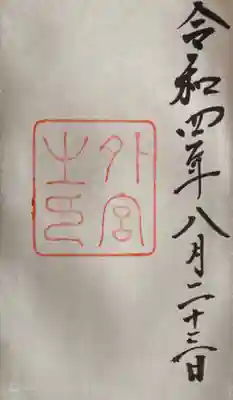 令和四年八月二十三日
外宮
之印